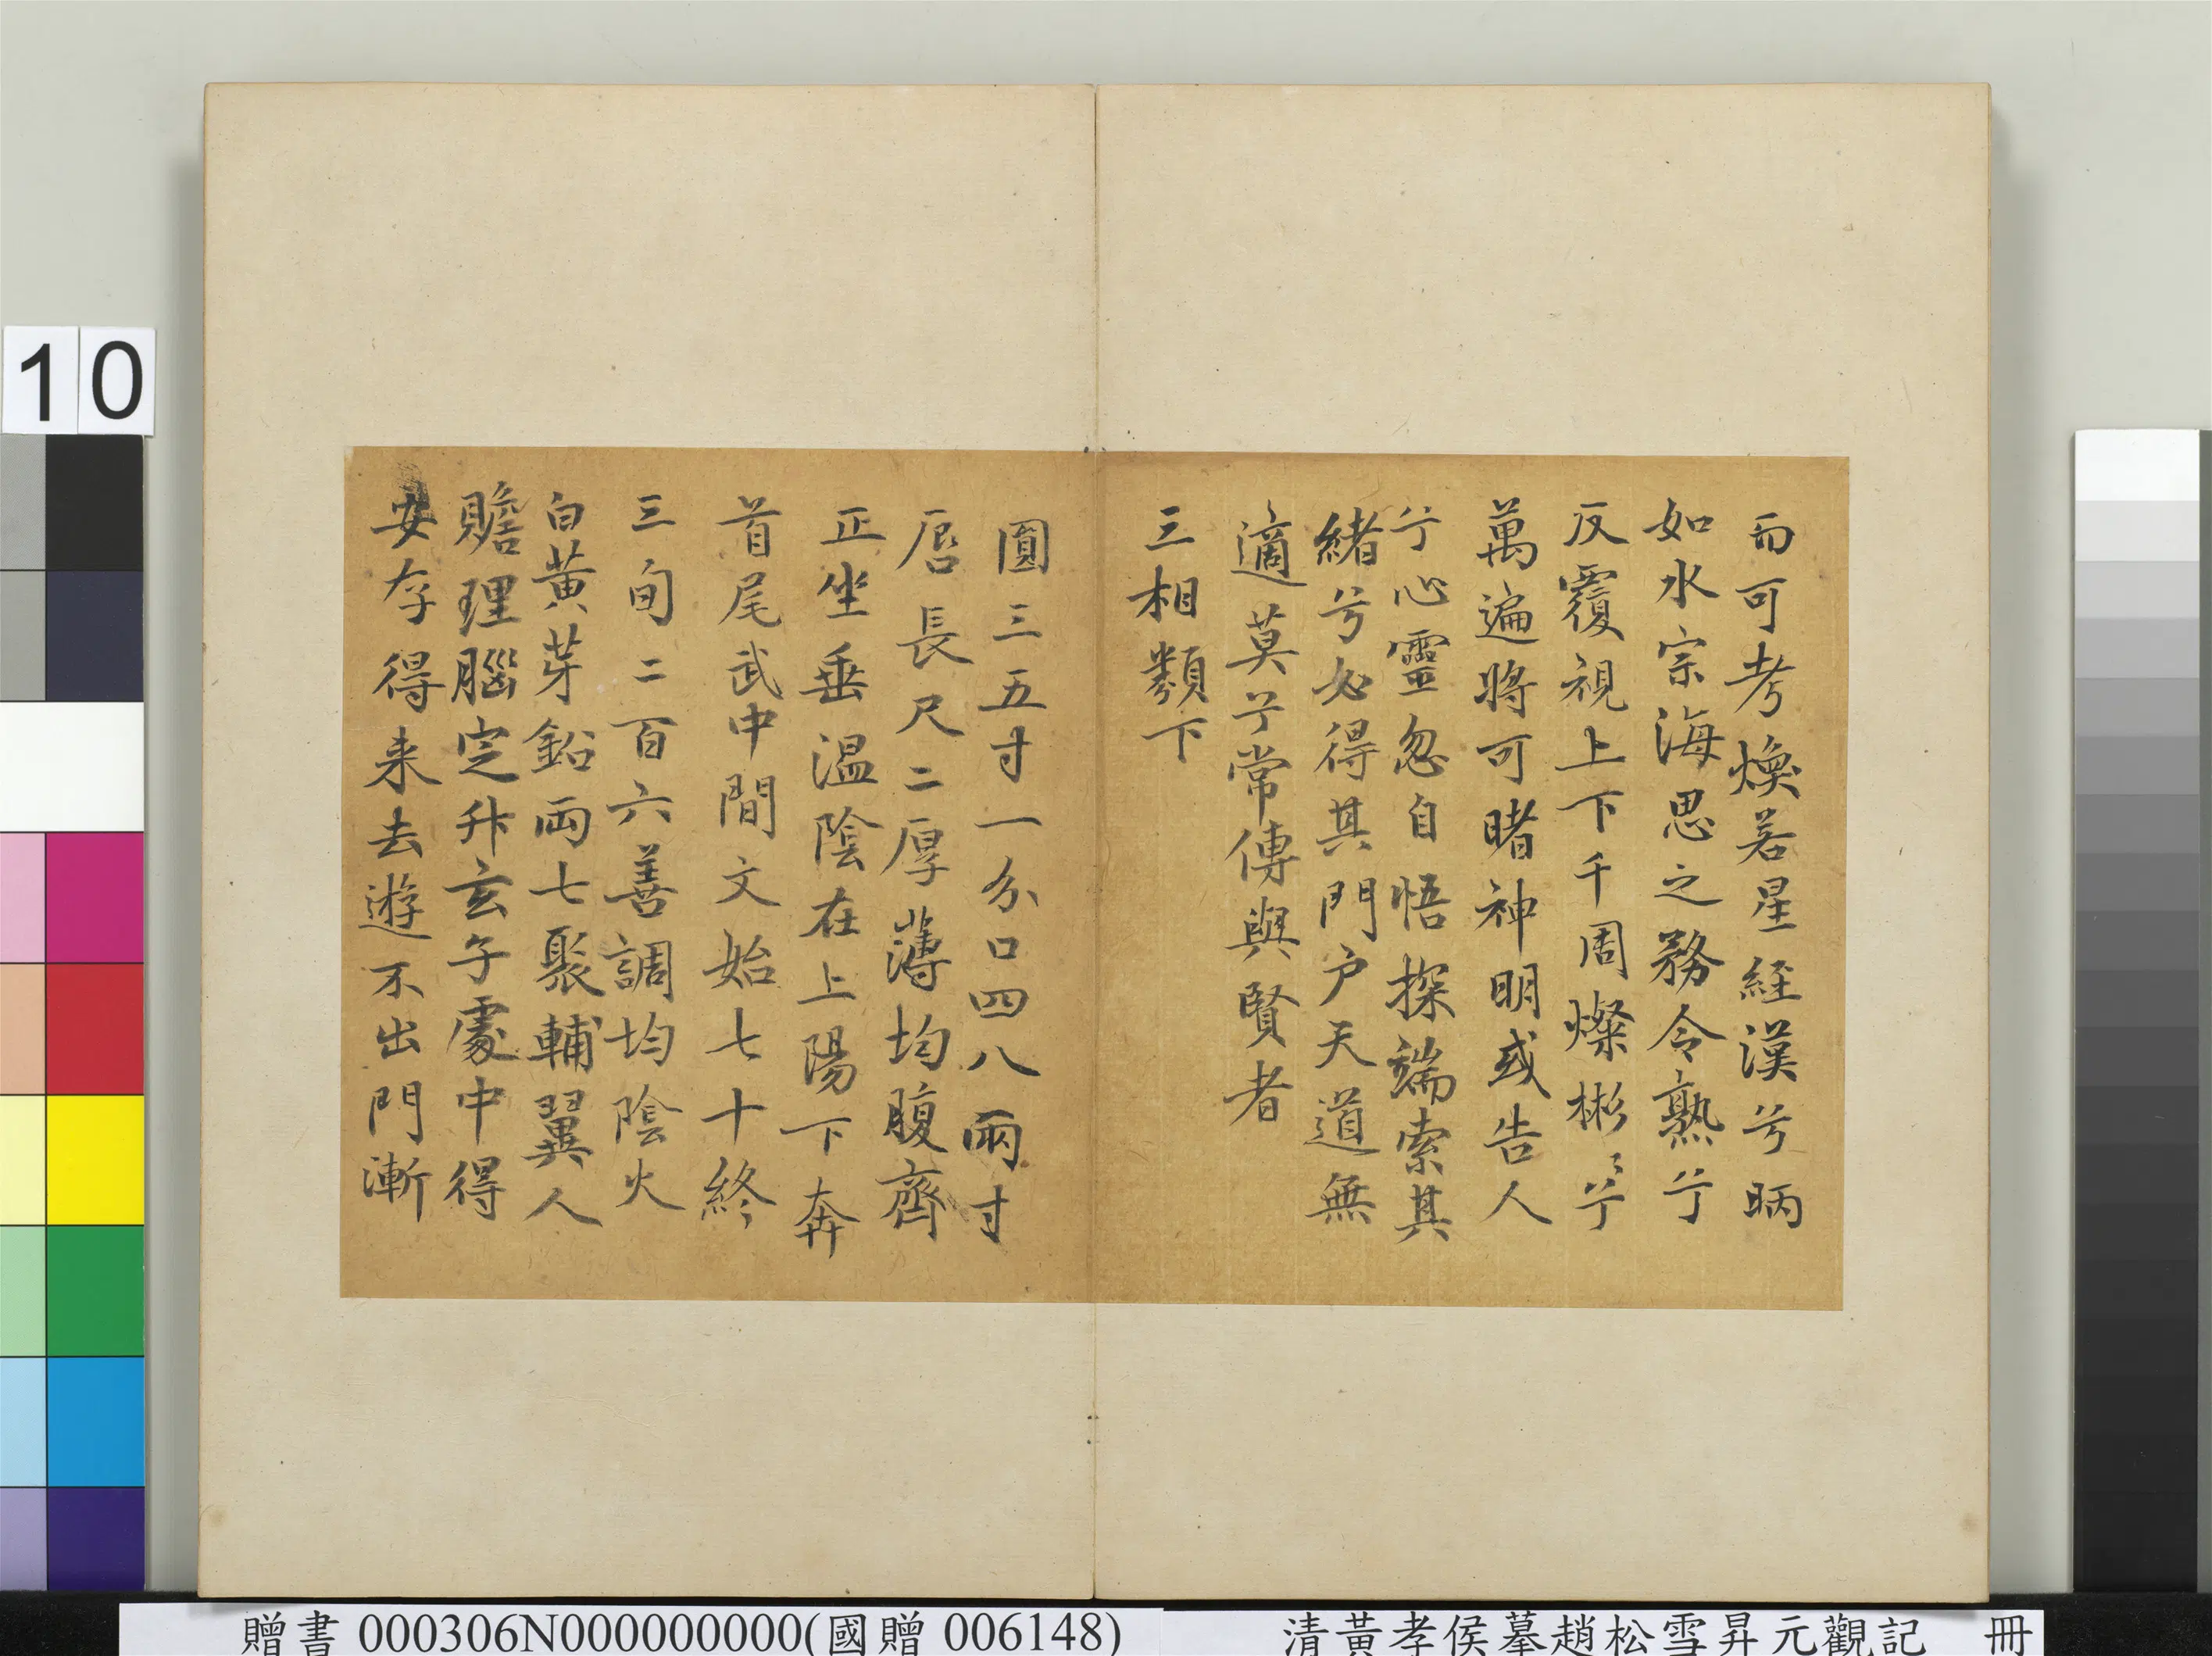 而可考煥若星經漢兮昞
如水宗海思之務令熟兮
反覆視上下千周燦彬〻兮
萬遍將可睹神明或告人
兮心靈忽自悟探端索其
緒兮必得其門户天道無
適莫兮常傳與賢者
三相類下
圓三五寸一分口四八兩寸
唇長尺二厚薄均腹齊
正坐垂溫陰在上陽下奔
首尾武中間文始七十終
三旬二百六善調均陰火
白黃芽鉛兩七聚輔翼人
贍理腦定升玄子處中得
安存得来去遊不出門漸
10
贈書 000306N000000000(國贈 006148)
清黃孝侯摹趙松雪昇元觀記 冊